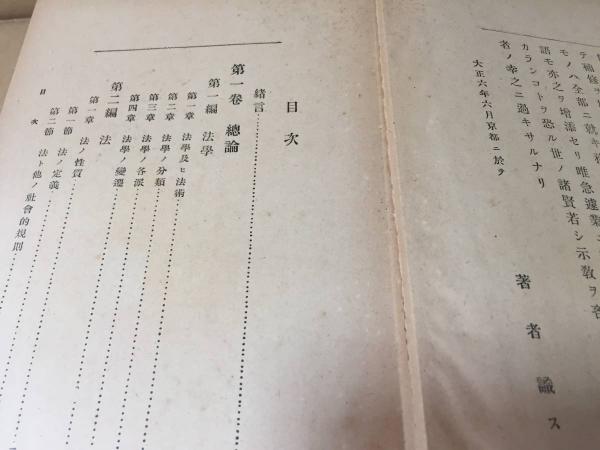 テ補修ヲ
モノハ全部ニ就キ
語モ亦之ヲ增添セリ唯急遽業ニ
カランコトヲ恐ル世ノ諸賢若シ示敎ヲ吝
者ノ幸之ニ過キサルナリ
大正六年六月京都ニ於テ
著者識ス
目次
緖言
第一卷 總論
第一編 法學
第一章 法學及ヒ法術
第二章 法學ノ分類
第三章 法學ノ各派
第四章 法學ノ變遷
第二編 法
第一章 法ノ性質
第一節 法ノ定義
第二節 法ト他ノ社會的規則
目次